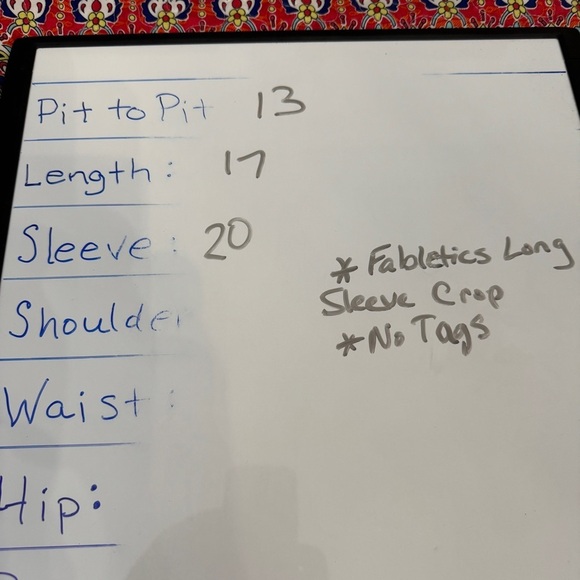 Pit to Pit 13
Length: 17
Sleeve: 20
* Fabletics Long
Sleeve Crop
* No Tags
Shoulder
Waist:
Hip: